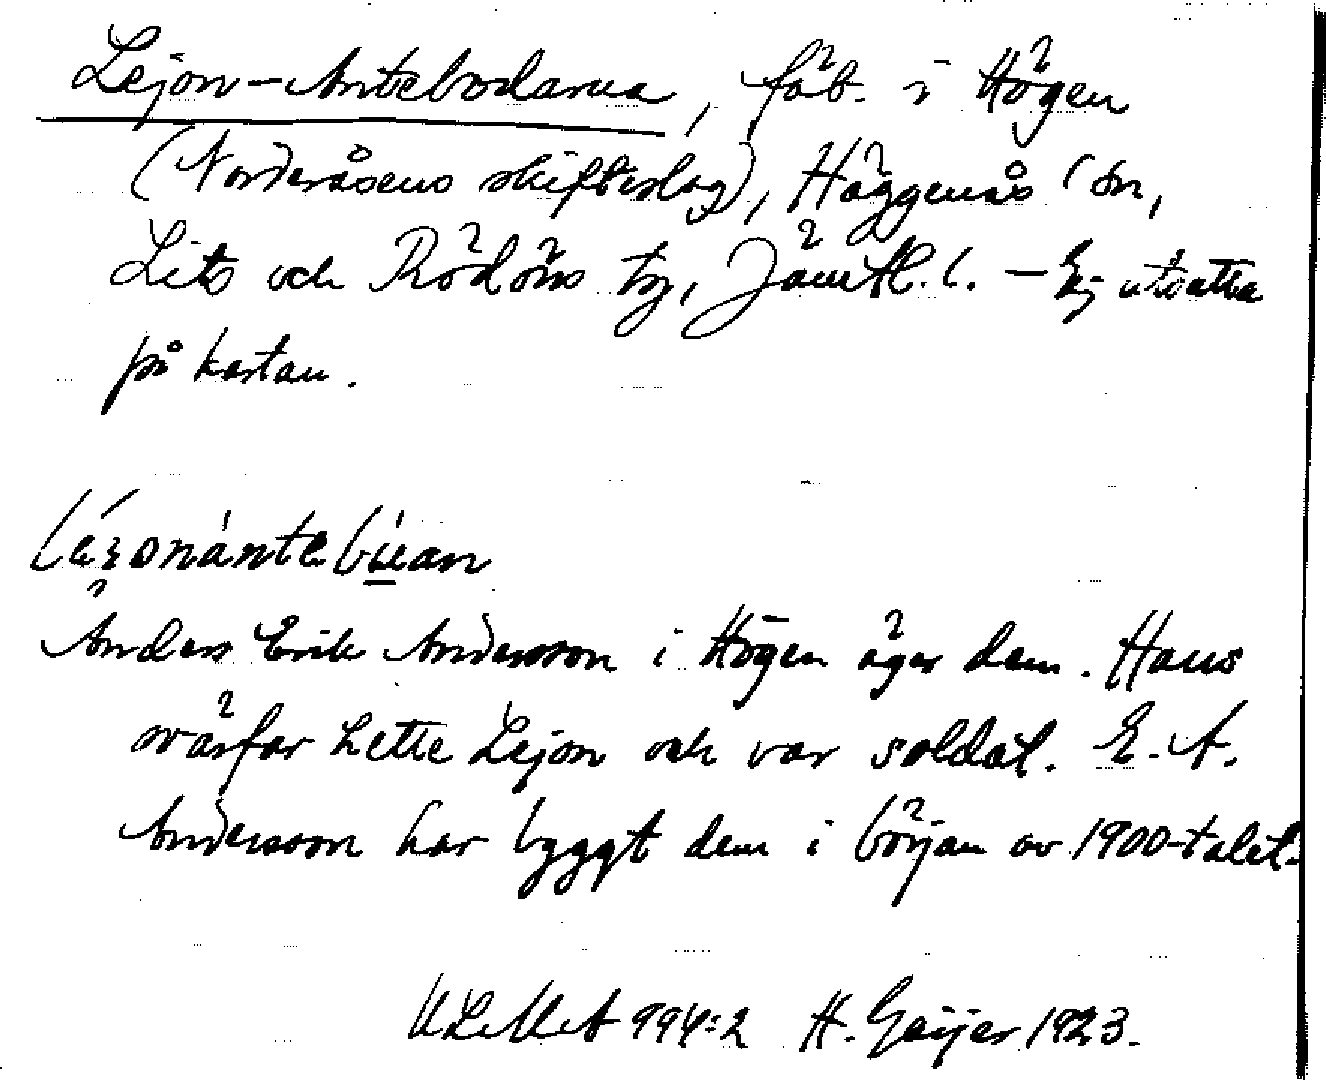 Lejon-Antebodarna, fäb. i Högen
(Norderåsens skifteslag), Häggenås sn,
Lits och Rödöns tg, Jämtl. l. – Ej utsatta
på kartan.
Anders Erik Andersson i Högen äger dem. Hans
svärfar hette Lejon och var soldat. E. A.
Andersson har byggt dem i början av 1900-talet.
ULMA 994:2 H. Geijer 1923.